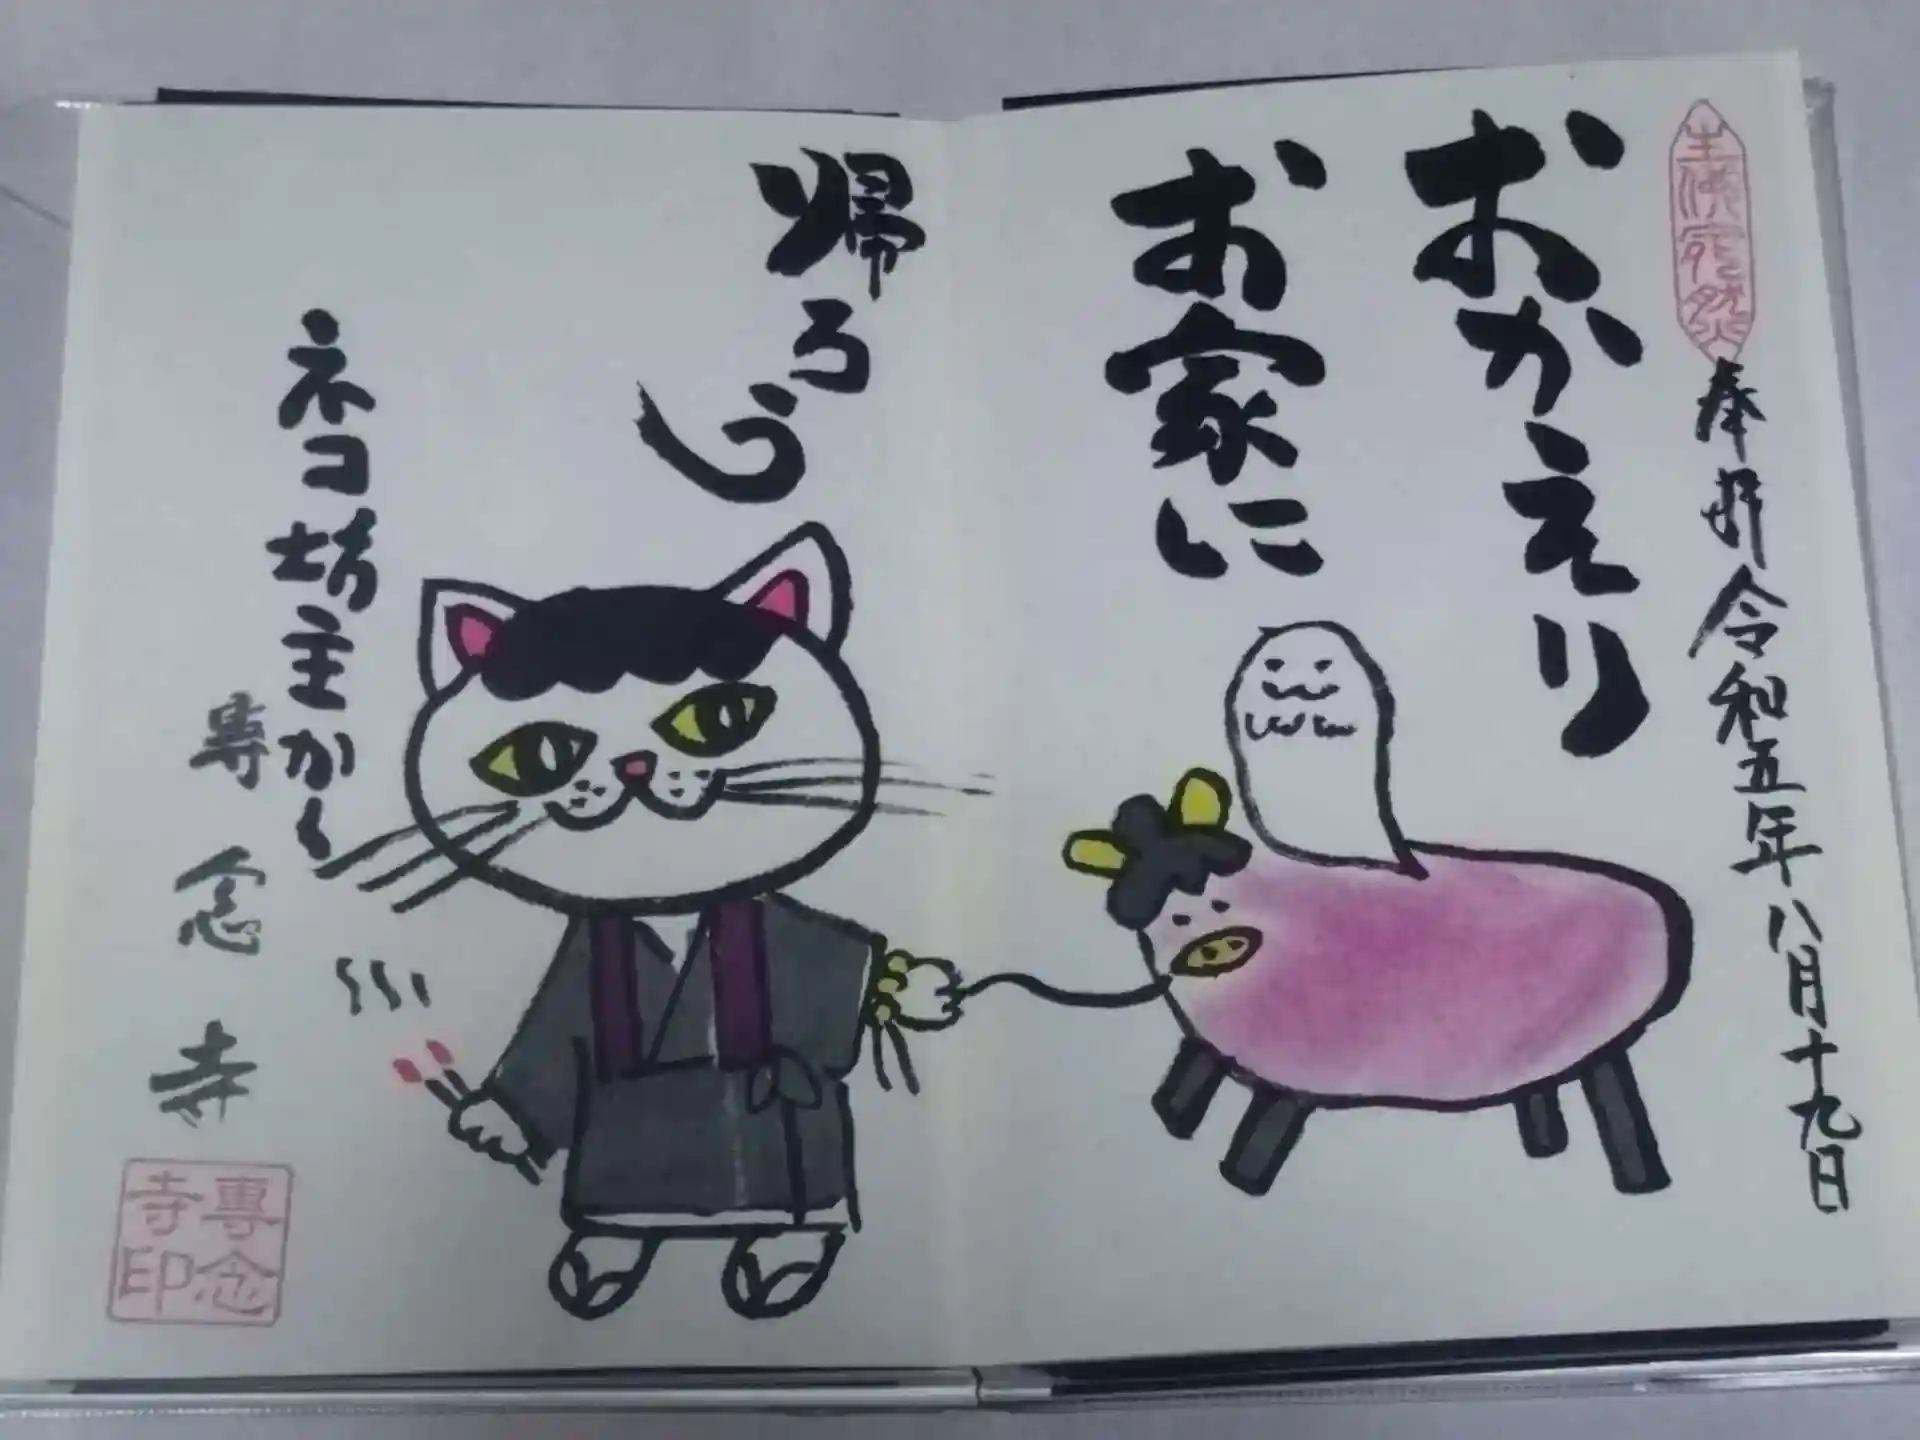 奉拝 令和五年八月十九日
おかえり
お家に
帰ろう
ネコ坊主から
専念寺
專念寺印